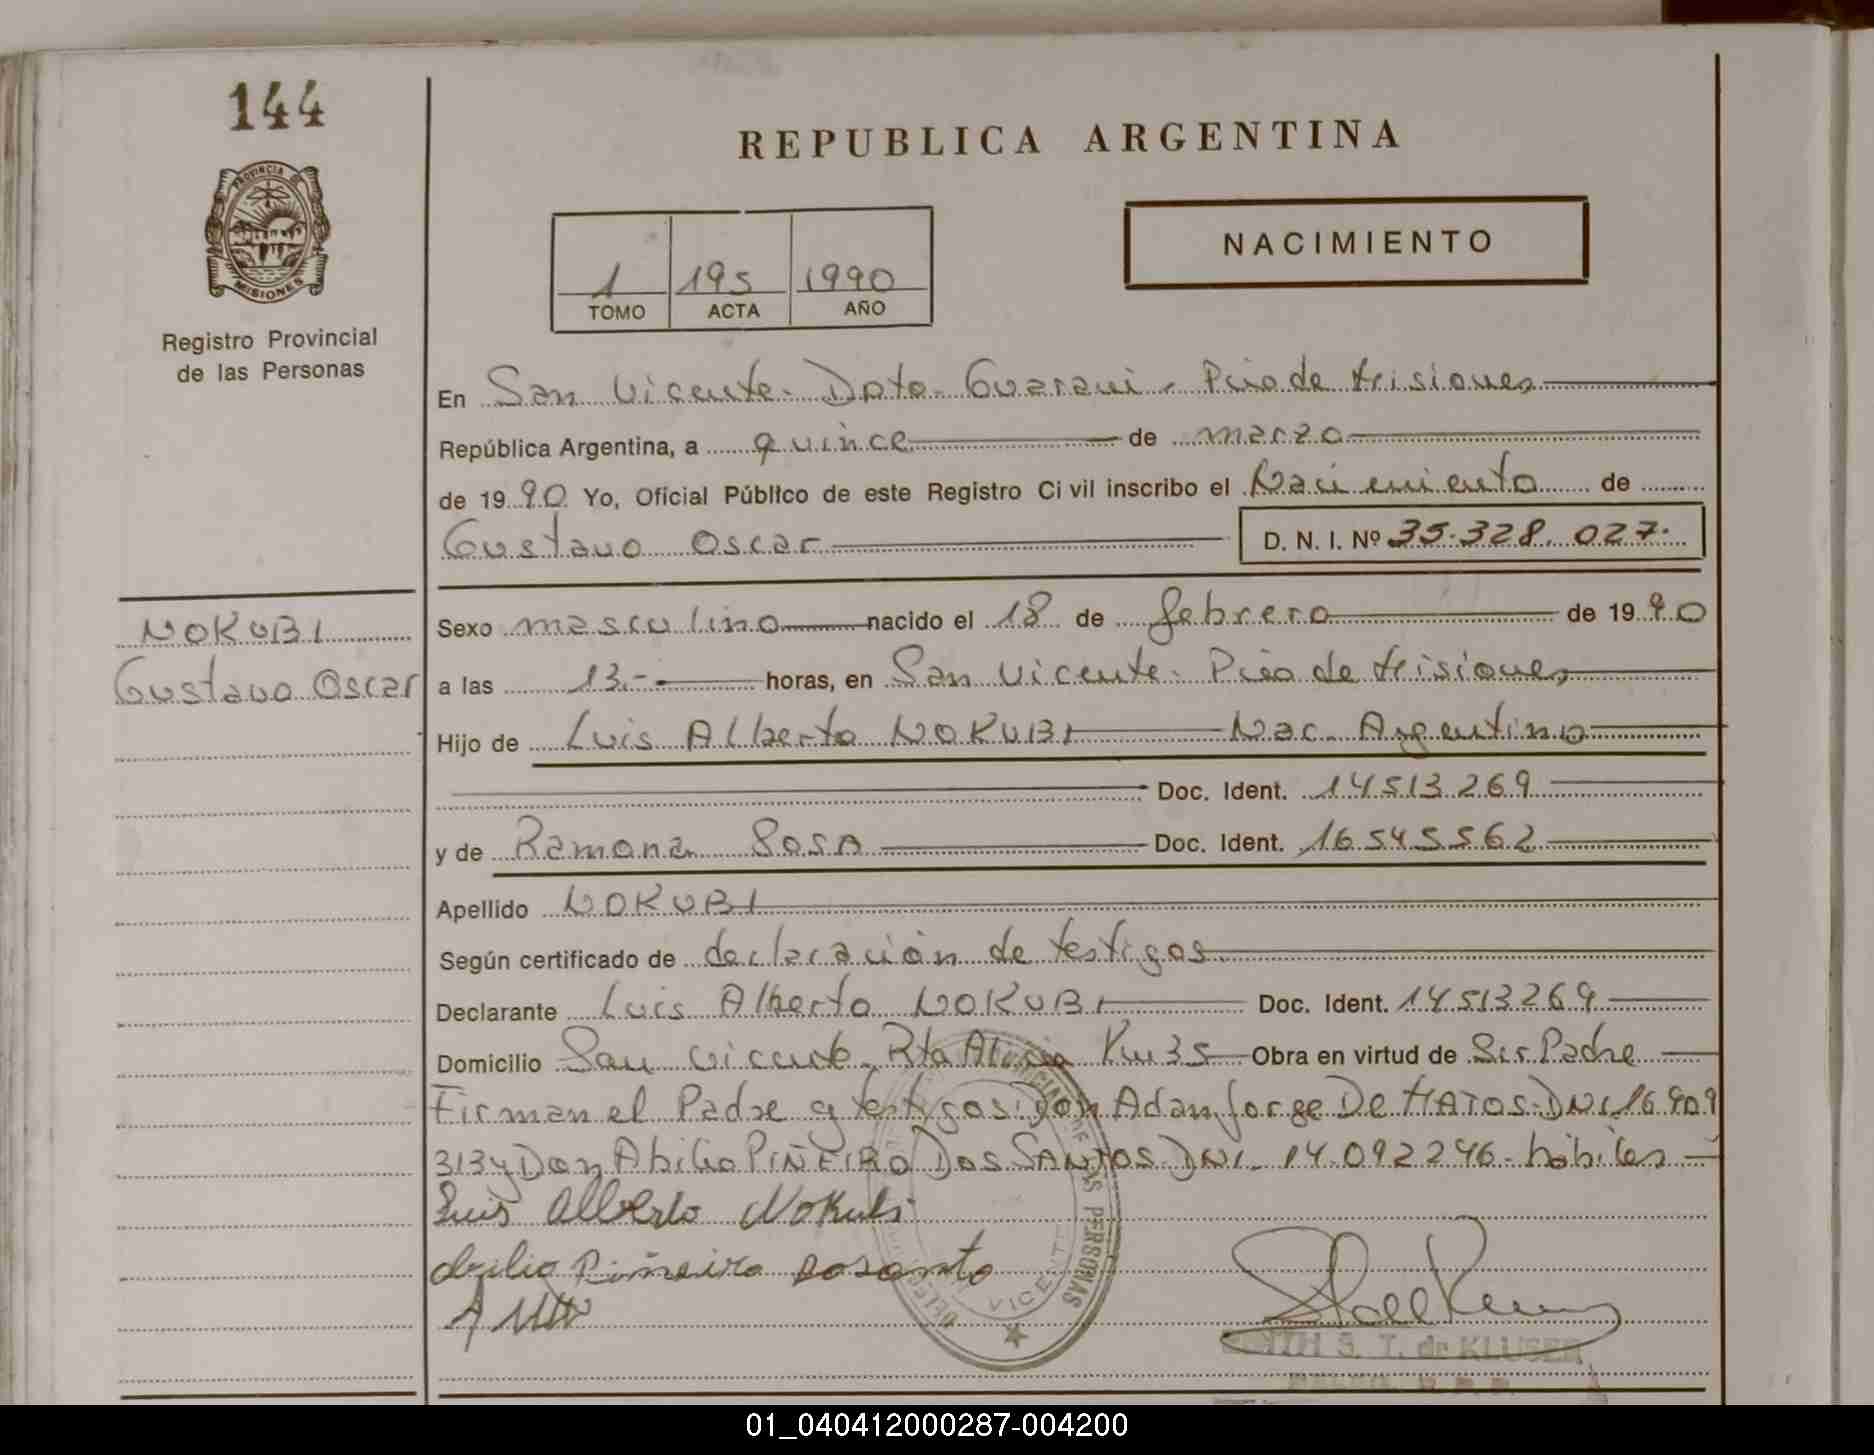 144
PROVINCIA DE
MISIONES
Registro Provincial
de las Personas
REPUBLICA ARGENTINA
1 195 1990
TOMO ACTA AÑO
NACIMIENTO
En San Vicente - Dpto - Guarani - Pcia de Misiones
República Argentina, a quince de marzo
de 1990 Yo, Oficial Público de este Registro Civil inscribo el Nacimiento de
Gustavo Oscar D. N. I. Nº 35.328.027.
NOKUBI
Gustavo Oscar
Sexo masculino nacido el 18 de febrero de 1990
a las 13.- horas, en San Vicente - Pcia de Misiones
Hijo de Luis Alberto NOKUBI Nac. Argentino
Doc. Ident. 14513269
y de Ramona SOSA Doc. Ident. 16545562
Apellido NOKUBI
Según certificado de declaración de testigos
Declarante Luis Alberto NOKUBI Doc. Ident. 14513269
Domicilio San Vicente - Rta Alicia Km 35 Obra en virtud de Ser Padre
Firman el Padre y testigos: Don Adan Jorge De MATOS - DNI. 16.909
313 y Don Abilio PIÑEIRO DOS SANTOS DNI. 14.092246 - hábiles
Luis Alberto Nokubi
Abilio Piñeiro dosanto
DE LAS PERSONAS
VICENTE
S. T. de KLUSER
01_040412000287-004200